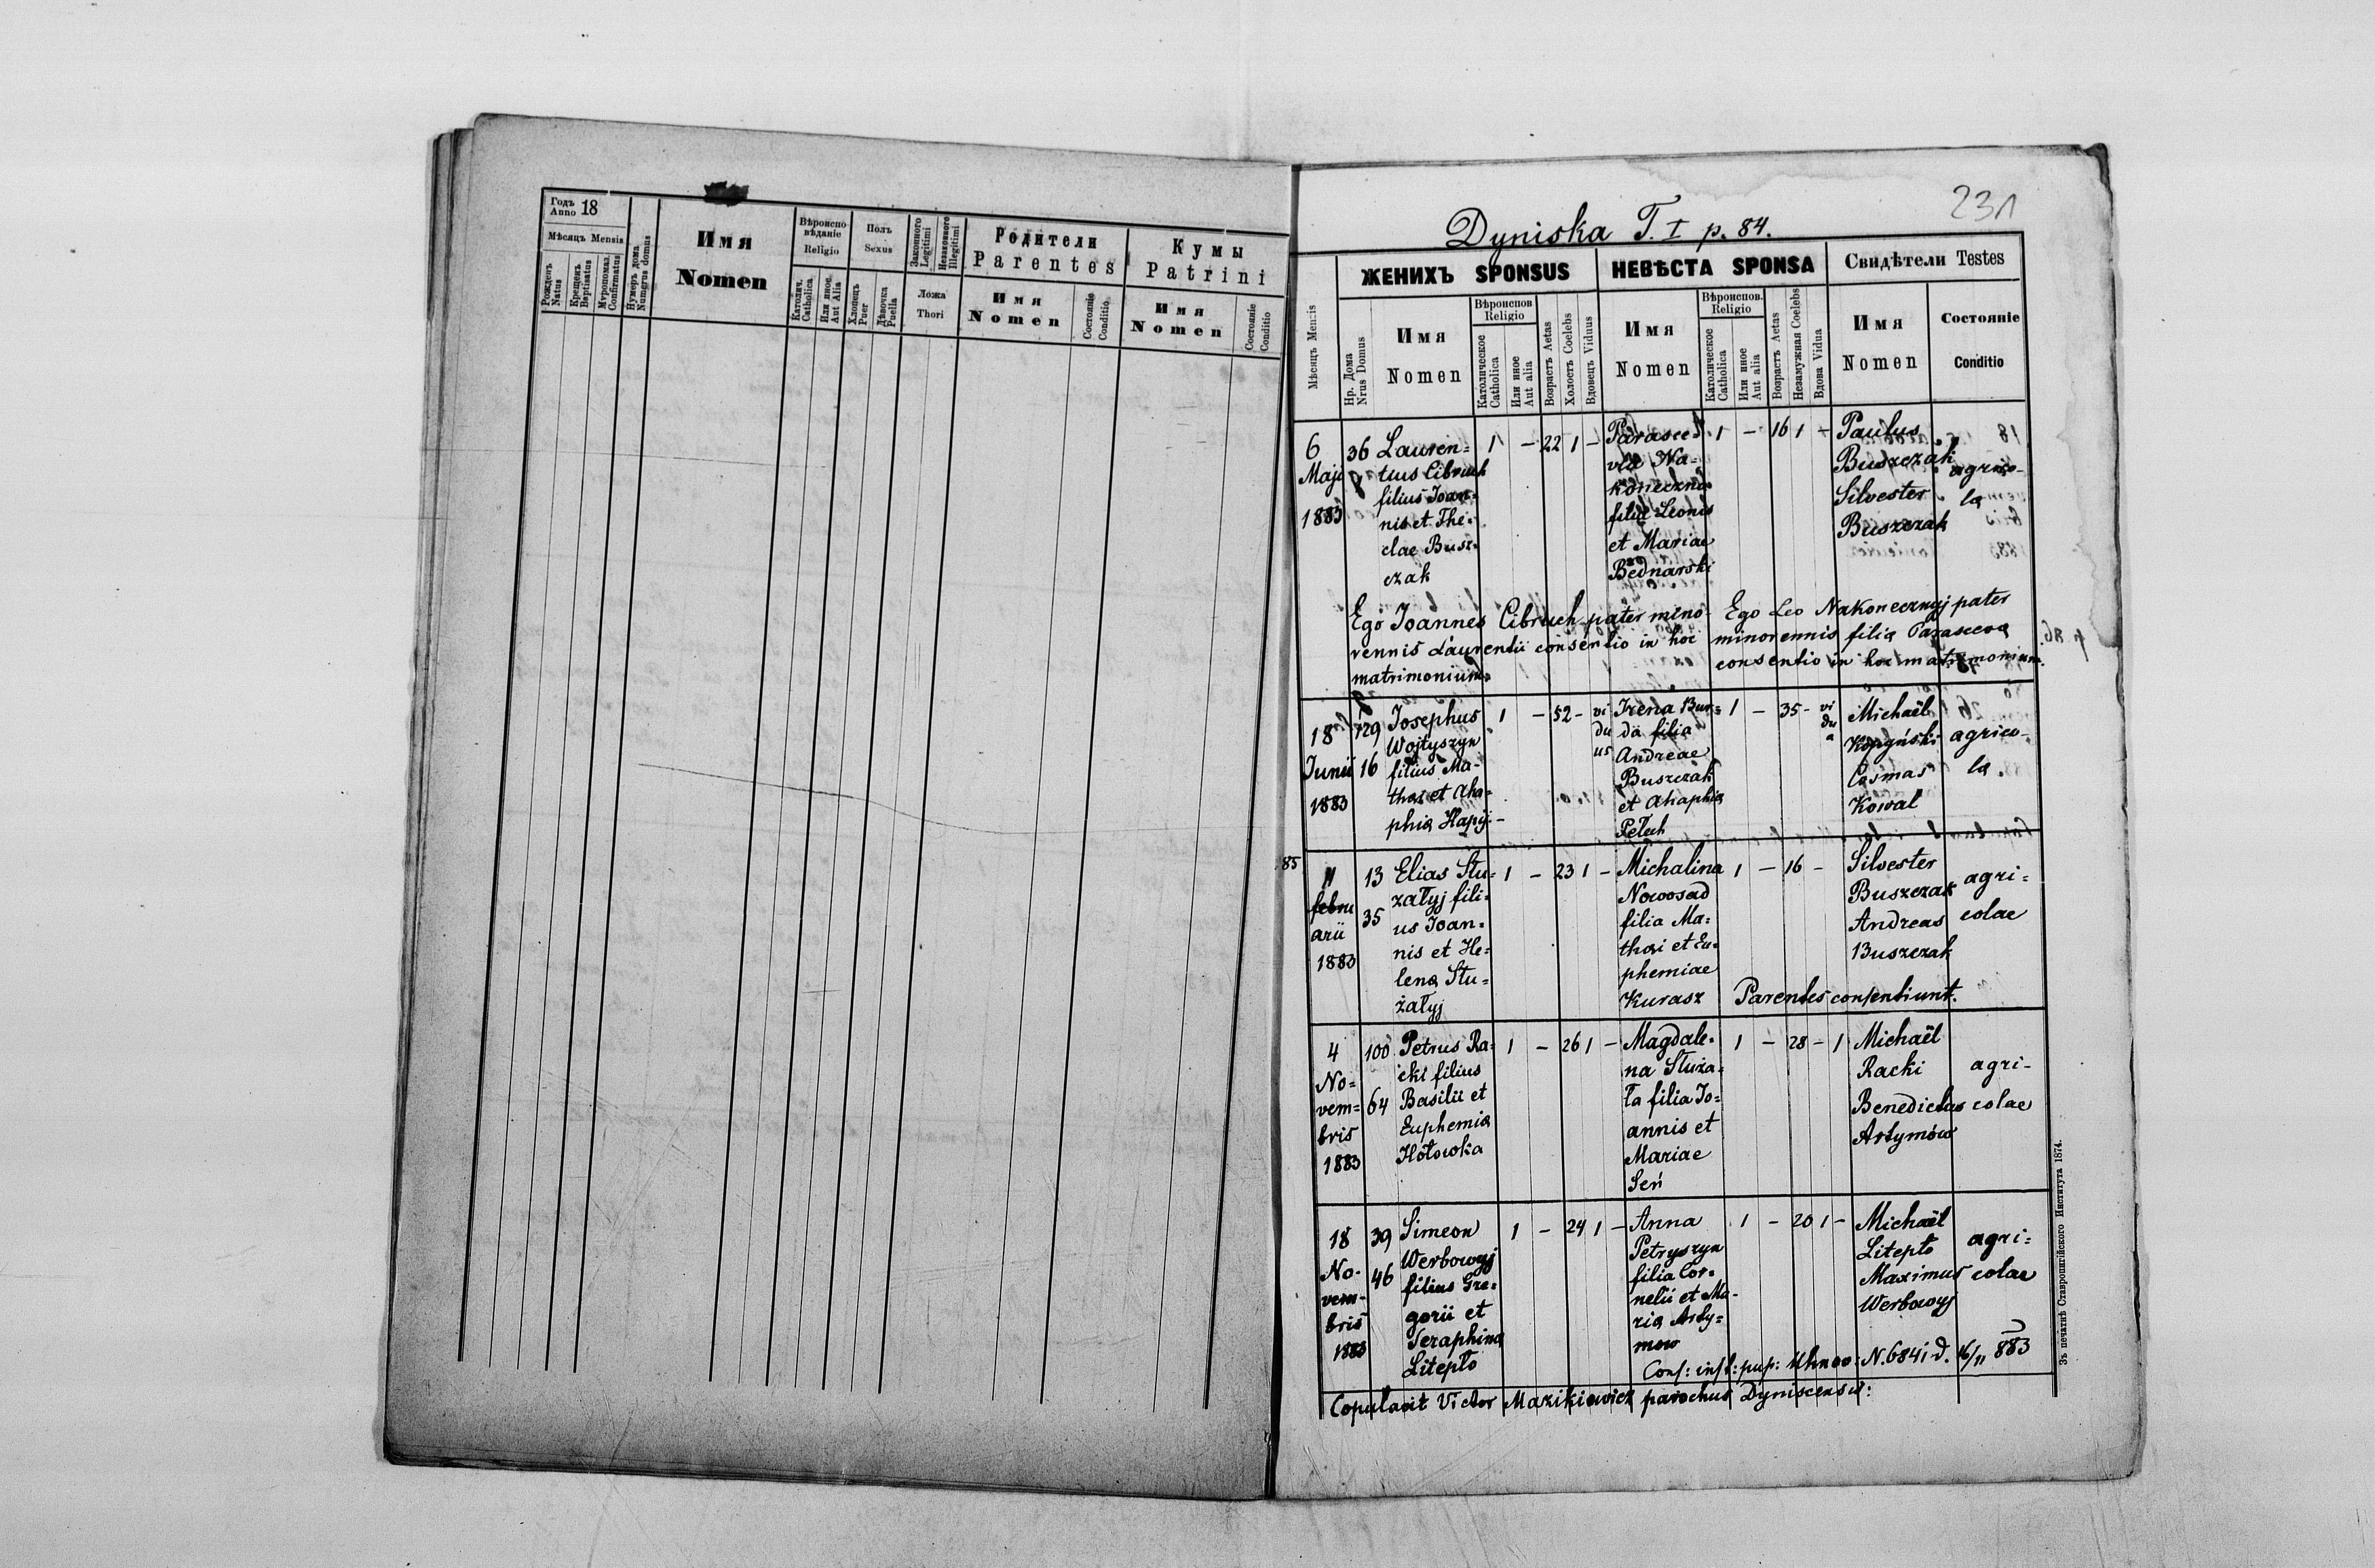 Годъ Anno 18
Мѣсяцъ Mensis
Рожденъ Natus
Крещенъ Baptisatus
Мѵропомаз. Confirmatus
Нумеръ дома Numerus domus
Имя
Nomen
Вѣроиспо-
вѣданіе
Religio
Католич. Catholica
Или иное Aut Alia
Полъ
Sexus
Хлопецъ Puer
Дѣвочка Puella
Законного Legitimi
Незаконного Illegitimi
Ложа
Thori
Родители
Parentes
Имя
Nomen
Состояніе Conditio
Кумы
Patrini
Имя
Nomen
Состояніе Conditio
231
Dyniska T. I p. 84.
Мѣсяцъ Mensis
ЖЕНИХЪ SPONSUS
НЕВѢСТА SPONSA
Свидѣтели Testes
Нр. Дома Nrus Domus
Имя
Nomen
Вѣроиспов.
Religio
Католическое Catholica
Или иное Aut alia
Возрастъ Aetas
Холостъ Coelebs
Вдовецъ Viduus
Имя
Nomen
Вѣроиспов.
Religio
Католическое Catholica
Или иное Aut alia
Возрастъ Aetas
Незамужная Coelebs
Вдова Vidua
Имя
Nomen
Состояніе
Conditio
6
Maji
1883
36
Lauren=
tius Cibruch
filius Joan=
nis et The=
clae Busz=
czak
1 - 22 1 -
Parasce=
via Na=
koneczna
filia Leonis
et Mariae
Bednarski
1 - 16 1 -
Paulus
Buszczak
Silvester
Buszczak
agrico-
la
Ego Joannes Cibruch pater mino-
rennis Laurentii consentio in hoc
matrimonium.
Ego Leo Nakonecznyj pater
minorennis filia Parasceva
consentio in hoc matrimonium.
18
Junii
1883
129
16
Josephus
Wojtyszyn
filius Ma-
thei et Aha-
phia Hapij-
1 - 52 - vi
du
us
Irena Bur=
da filia
Andreae
Buszczak
et Ahaphia
Peluh
1 - 35 - vi
du
a
Michaël
Cosmas
Kowal
agrico-
la.
85
11
febru
arii
1883
13
35
Elias Stu=
załyj fili=
us Joan=
nis et He=
lena Stu=
żałyj
1 - 23 1 -
Michalina
Nowosad
filia Ma=
thei et Eu=
phemiae
Kurasz
1 - 16 -
Silvester
Buszczak
Andreas
Buszczak
agri=
colae
Parentes consentiunt.
4
No=
vem=
bris
1883
100
64
Petrus Ra=
cki filius
Basilii et
Euphemia
Hołowka
1 - 26 1 -
Magdale=
na Stuża=
ła filia Jo=
annis et
Mariae
Seń
1 - 28 - 1
Michaël
Racki
Benedictus
Artymów
agri-
colae
18
No-
vem-
bris
1883
39
46
Simeon
Werbowyj
filius Gre=
gorii et
Seraphina
Litepło
1 - 24 1 -
Anna
Petryszyn
filia Cor=
nelii et Ma-
ria Arty=
mow
1 - 20 1 -
Michaël
Litepło
Maximus
Werbowyj
agri=
colae
Conf: inst: pup: Uhnoo: N. 6841 d. 16/11 883
Copulavit Victor Mazikiewicz parochus Dyniscensis:
Зъ печатнѣ Ставропигійского Института 1874.